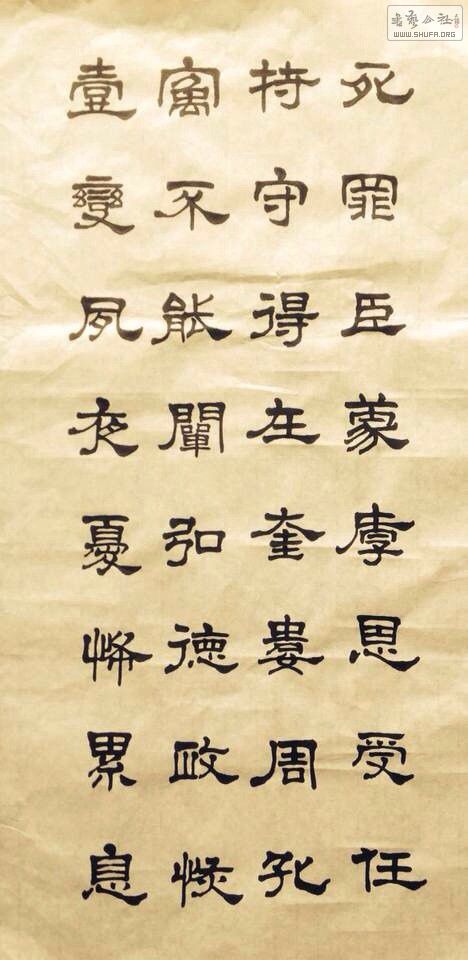 死罪臣蒙厚恩受任
持守得在奎婁周孔
寓不能闡弘德政恢
壹變夙夜憂怖累息
书艺公社
WWW.SHUFA.ORG